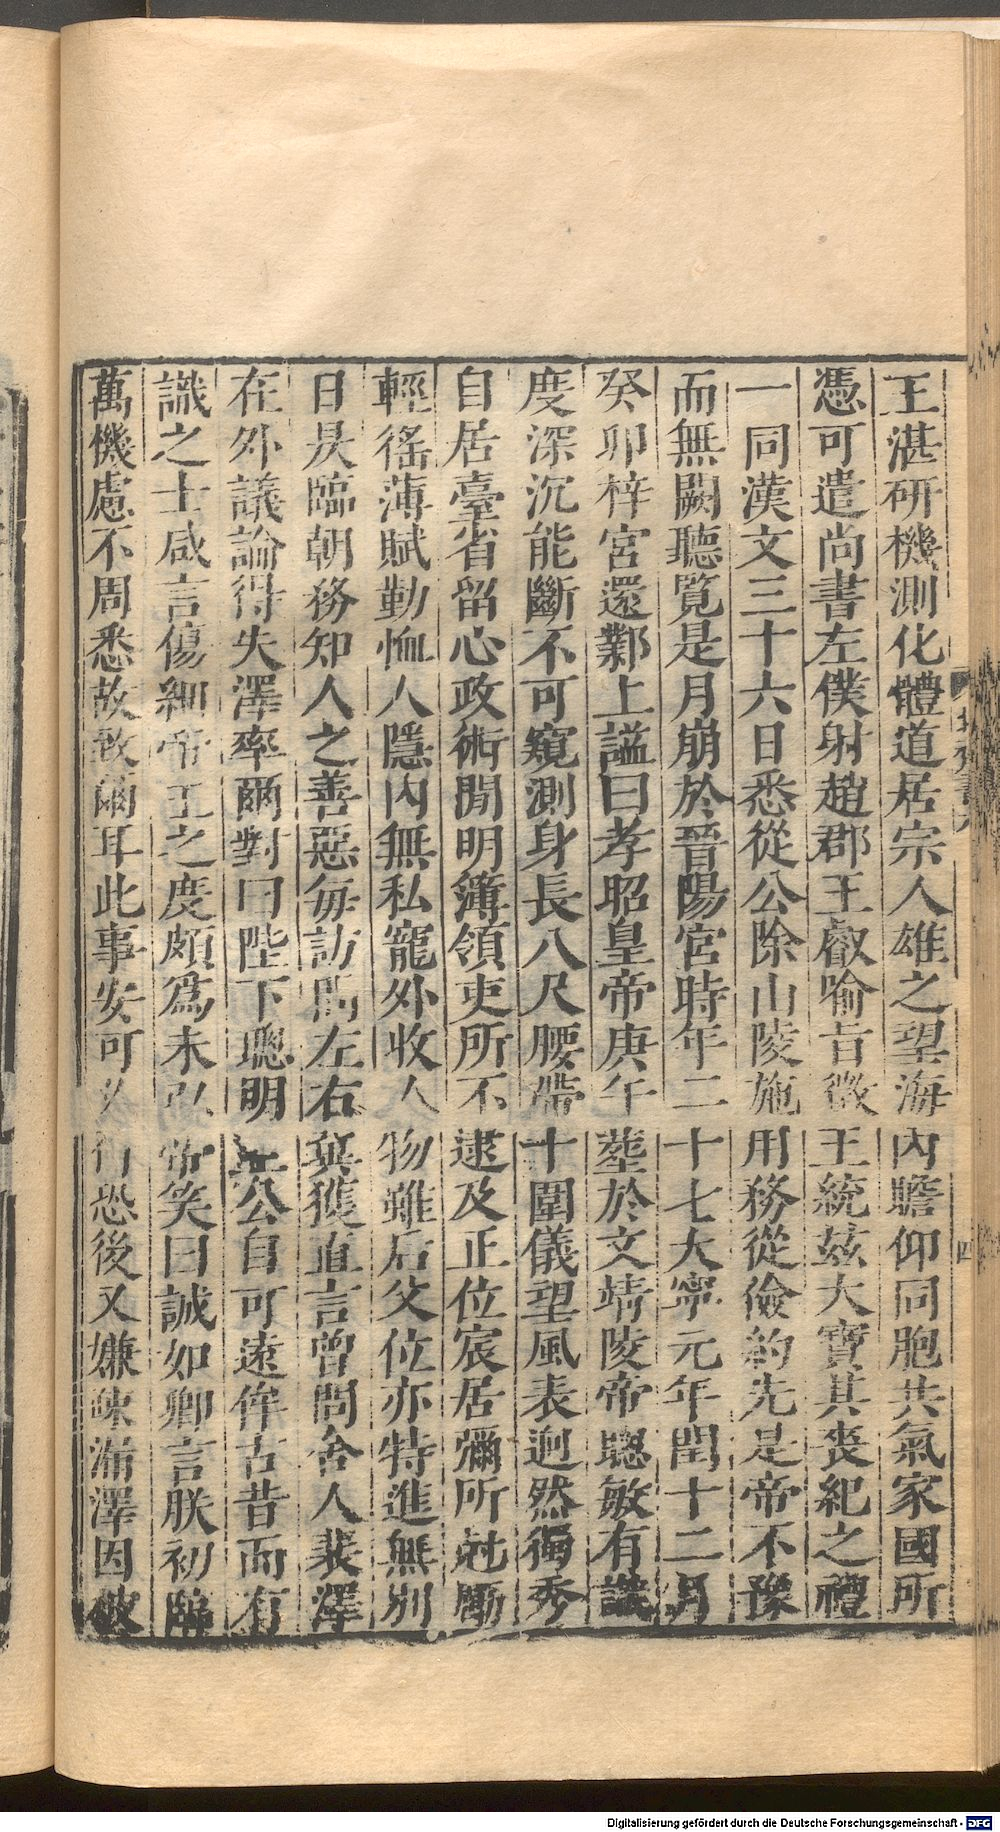 王湛研機測化體道居宗人雄之望海內瞻仰同胞共氣家國所
憑可遣尚書左僕射趙郡王叡喻旨徴王統玆大寶其喪紀之禮
一同漢文三十六日悉從公除山陵施用務從儉約先是帝不豫
而無闕聽覽是月崩於晉陽宮時年二十七大寧元年閏十二月
癸卯梓宮還鄴上謚曰孝昭皇帝庚午塟於文靖陵帝聰敏有識
度深沉能斷不可窺測身長八尺腰帶十圍儀望風表迥然獨秀
自居臺省留心政術閒明簿領吏所不逮及正位宸居彌所尅勵
輕徭薄賦勤恤人隱內無私寵外收人物雖后父位亦特進無別
日昃臨朝務知人之善惡每訪問左右冀獲直言曾問舍人裴澤
在外議論得失澤率爾對曰陛下聰明至公自可遠侔古昔而有
識之士咸言傷細帝王之度頗爲未弘帝笑曰誠如卿言朕初臨
萬機慮不周悉故致爾耳此事安可久行恐後又嫌疎漏澤因被
四
Digitalisierung gefördert durch die Deutsche Forschungsgemeinschaft - DFG